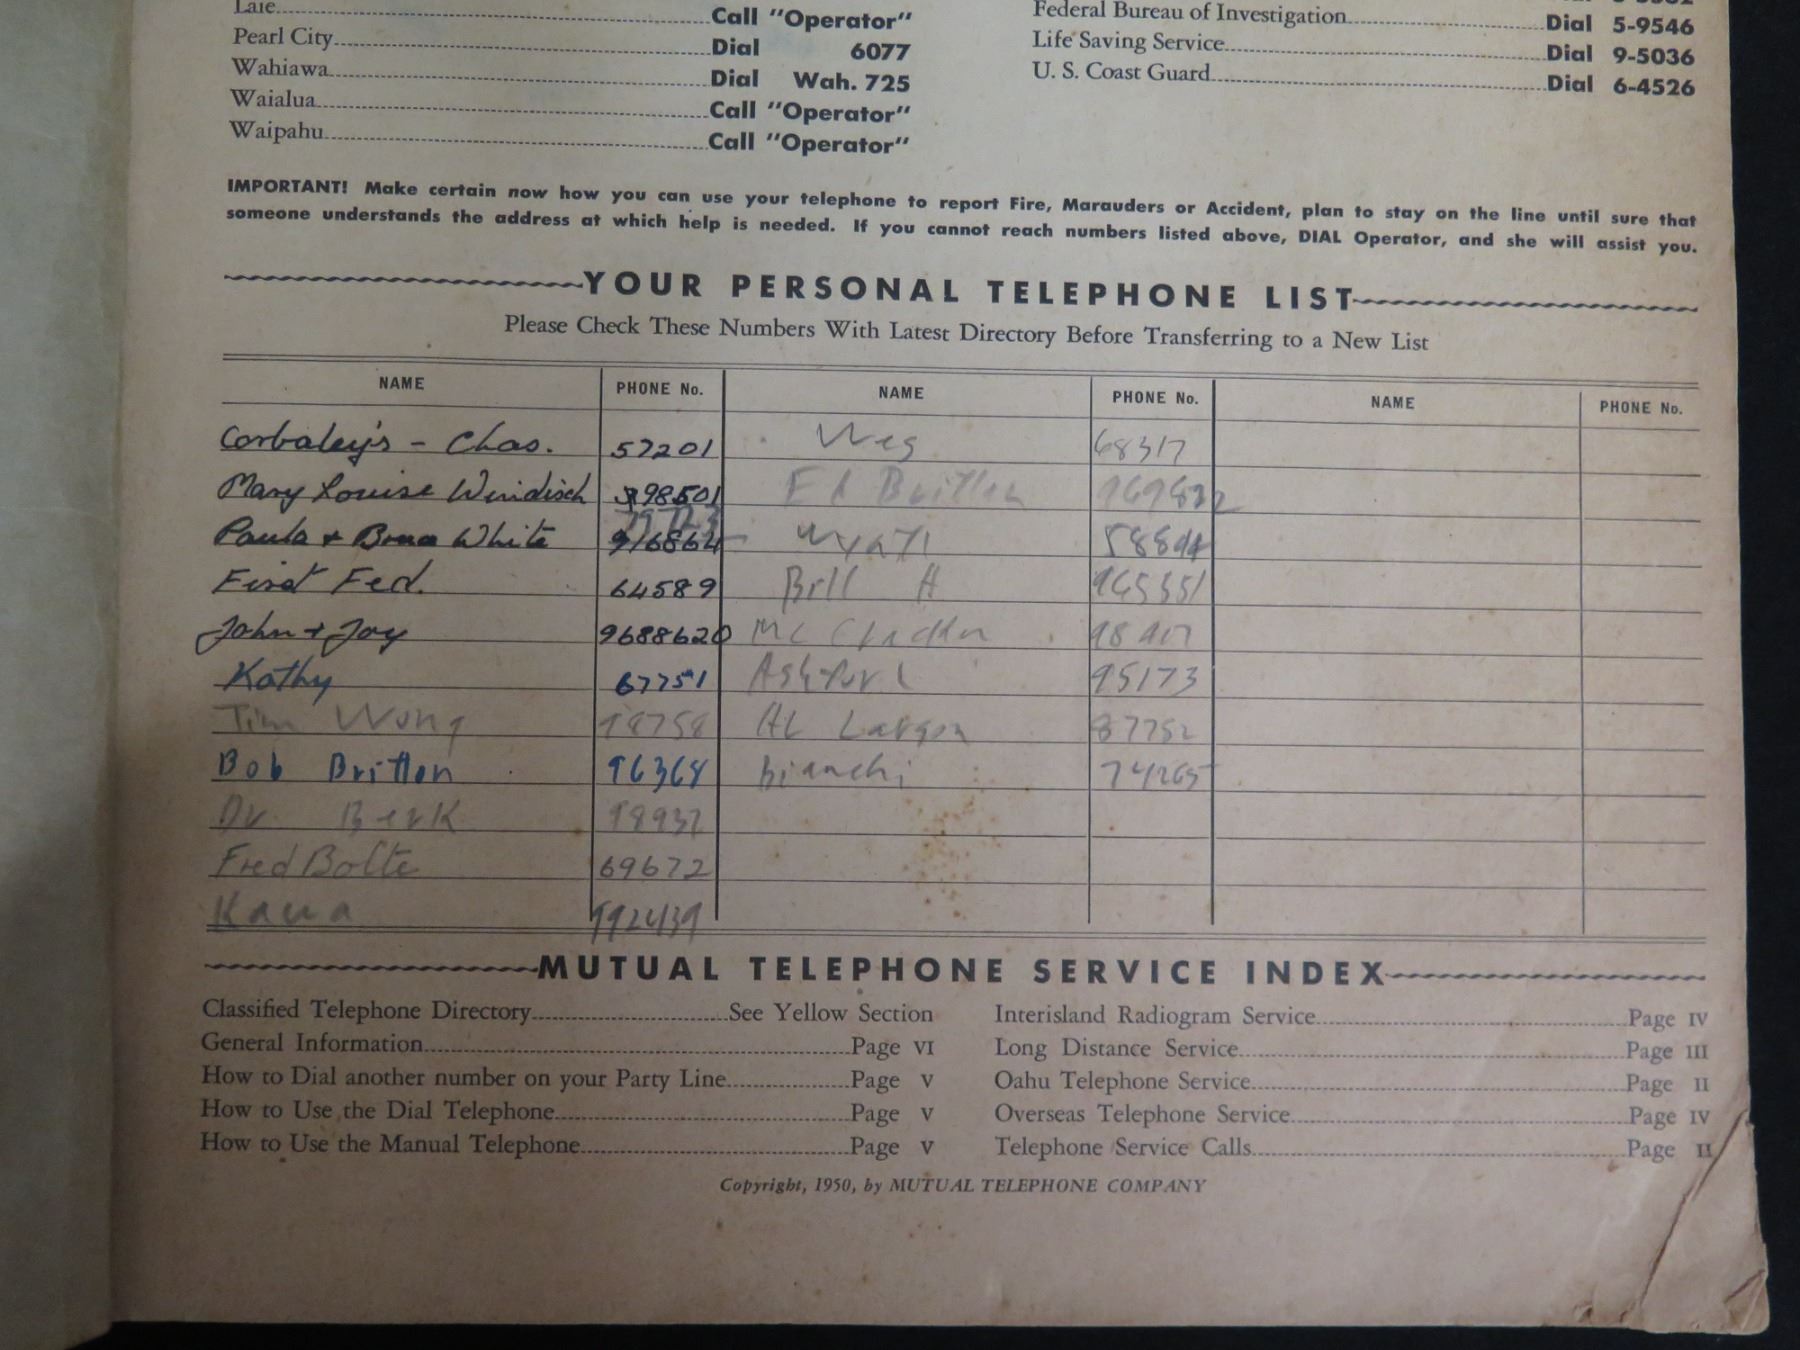 Laie Call "Operator"
Pearl City Dial 6077
Wahiawa Dial Wah. 725
Waialua Call "Operator"
Waipahu Call "Operator"
Federal Bureau of Investigation Dial 5-9546
Life Saving Service Dial 9-5036
U. S. Coast Guard Dial 6-4526
IMPORTANT! Make certain now how you can use your telephone to report Fire, Marauders or Accident, plan to stay on the line until sure that
someone understands the address at which help is needed. If you cannot reach numbers listed above, DIAL Operator, and she will assist you.
YOUR PERSONAL TELEPHONE LIST
Please Check These Numbers With Latest Directory Before Transferring to a New List
NAME PHONE No. NAME PHONE No. NAME PHONE No.
Corbaley's - Chas. 57201
68317
Mary Louise Windisch 98501
Ed Britton
Paula + Bruce White
Wyatt
First Fed. 64589
Bill H
John + Joy 9688620
Mc
Kathy 67751
95173
Tim Wong 98758
Al Larson 87752
Bob Britton 96368
Bianchi 74265
Dr. Berk 98937
Fred Bolte 69672
992439
MUTUAL TELEPHONE SERVICE INDEX
Classified Telephone Directory See Yellow Section
General Information Page VI
How to Dial another number on your Party Line Page V
How to Use the Dial Telephone Page V
How to Use the Manual Telephone Page V
Interisland Radiogram Service Page IV
Long Distance Service Page III
Oahu Telephone Service Page II
Overseas Telephone Service Page IV
Telephone Service Calls Page II
Copyright, 1950, by MUTUAL TELEPHONE COMPANY